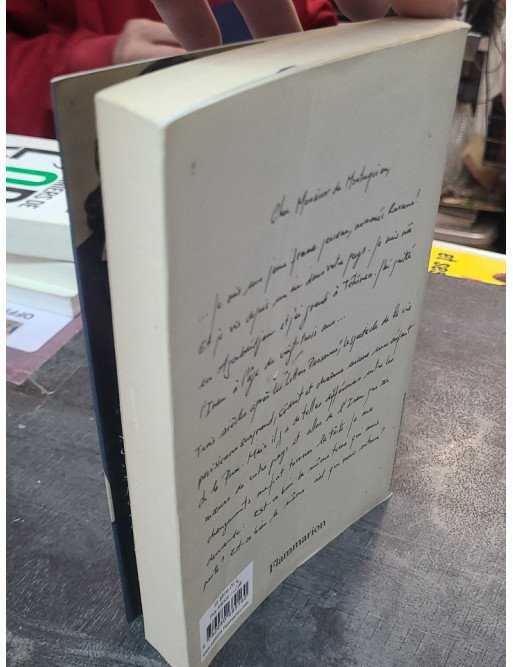 Cher Monsieur de Montesquieu,
... Je suis une jeune femme, nommée Roxane!
Et je vis depuis un an dans votre pays. Je suis née
en Azerbaïdjan et j'ai grandi à Téhéran. J'ai quitté
l'Iran à l'âge de vingt-trois ans...
Trois siècles après les Lettres Persanes, le spectacle de la vie
parisienne surprend, séduit et choque encore une enfant
de la Perse. Mais il y a de telles différences entre les
mœurs de votre pays et celles de l'Iran que de
changements me font tourner la tête. Je me
demande: Est-ce bien le même terre qui nous
porte? Est-ce bien le même ciel qui nous
Flammarion
et sec